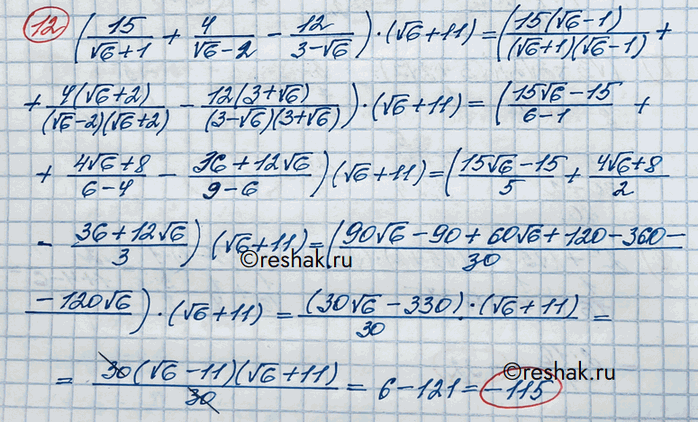 12 (15/(√6+1) + 4/(√6-2) - 12/(3-√6))·(√6+11) = (15(√6-1)/((√6+1)(√6-1)) +
+ 4(√6+2)/((√6-2)(√6+2)) - 12(3+√6)/((3-√6)(3+√6)))·(√6+11) = ((15√6-15)/(6-1) +
+ (4√6+8)/(6-4) - (36+12√6)/(9-6))(√6+11) = ((15√6-15)/5 + (4√6+8)/2
- (36+12√6)/3)(√6+11) = ((90√6-90+60√6+120-360-
©reshak.ru
-120√6)/30)·(√6+11) = (30√6-330)·(√6+11)/30 =
©reshak.ru
= 30(√6-11)(√6+11)/30 = 6-121 = -115